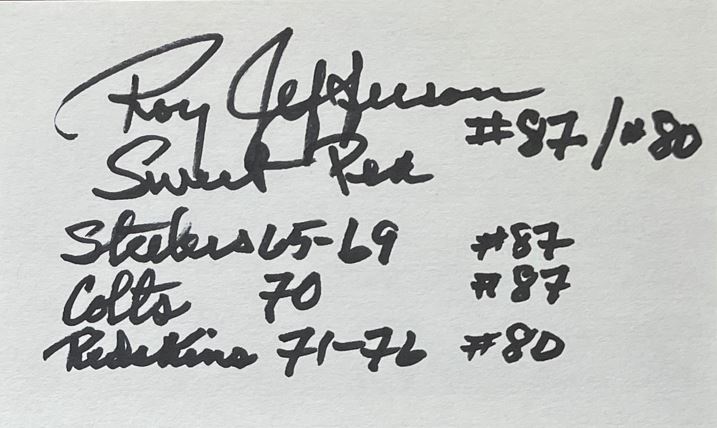 Roy Jefferson
#87/#80
Sweet Pea
Steelers 65-69 #87
Colts 70 #87
Redskins 71-76 #80